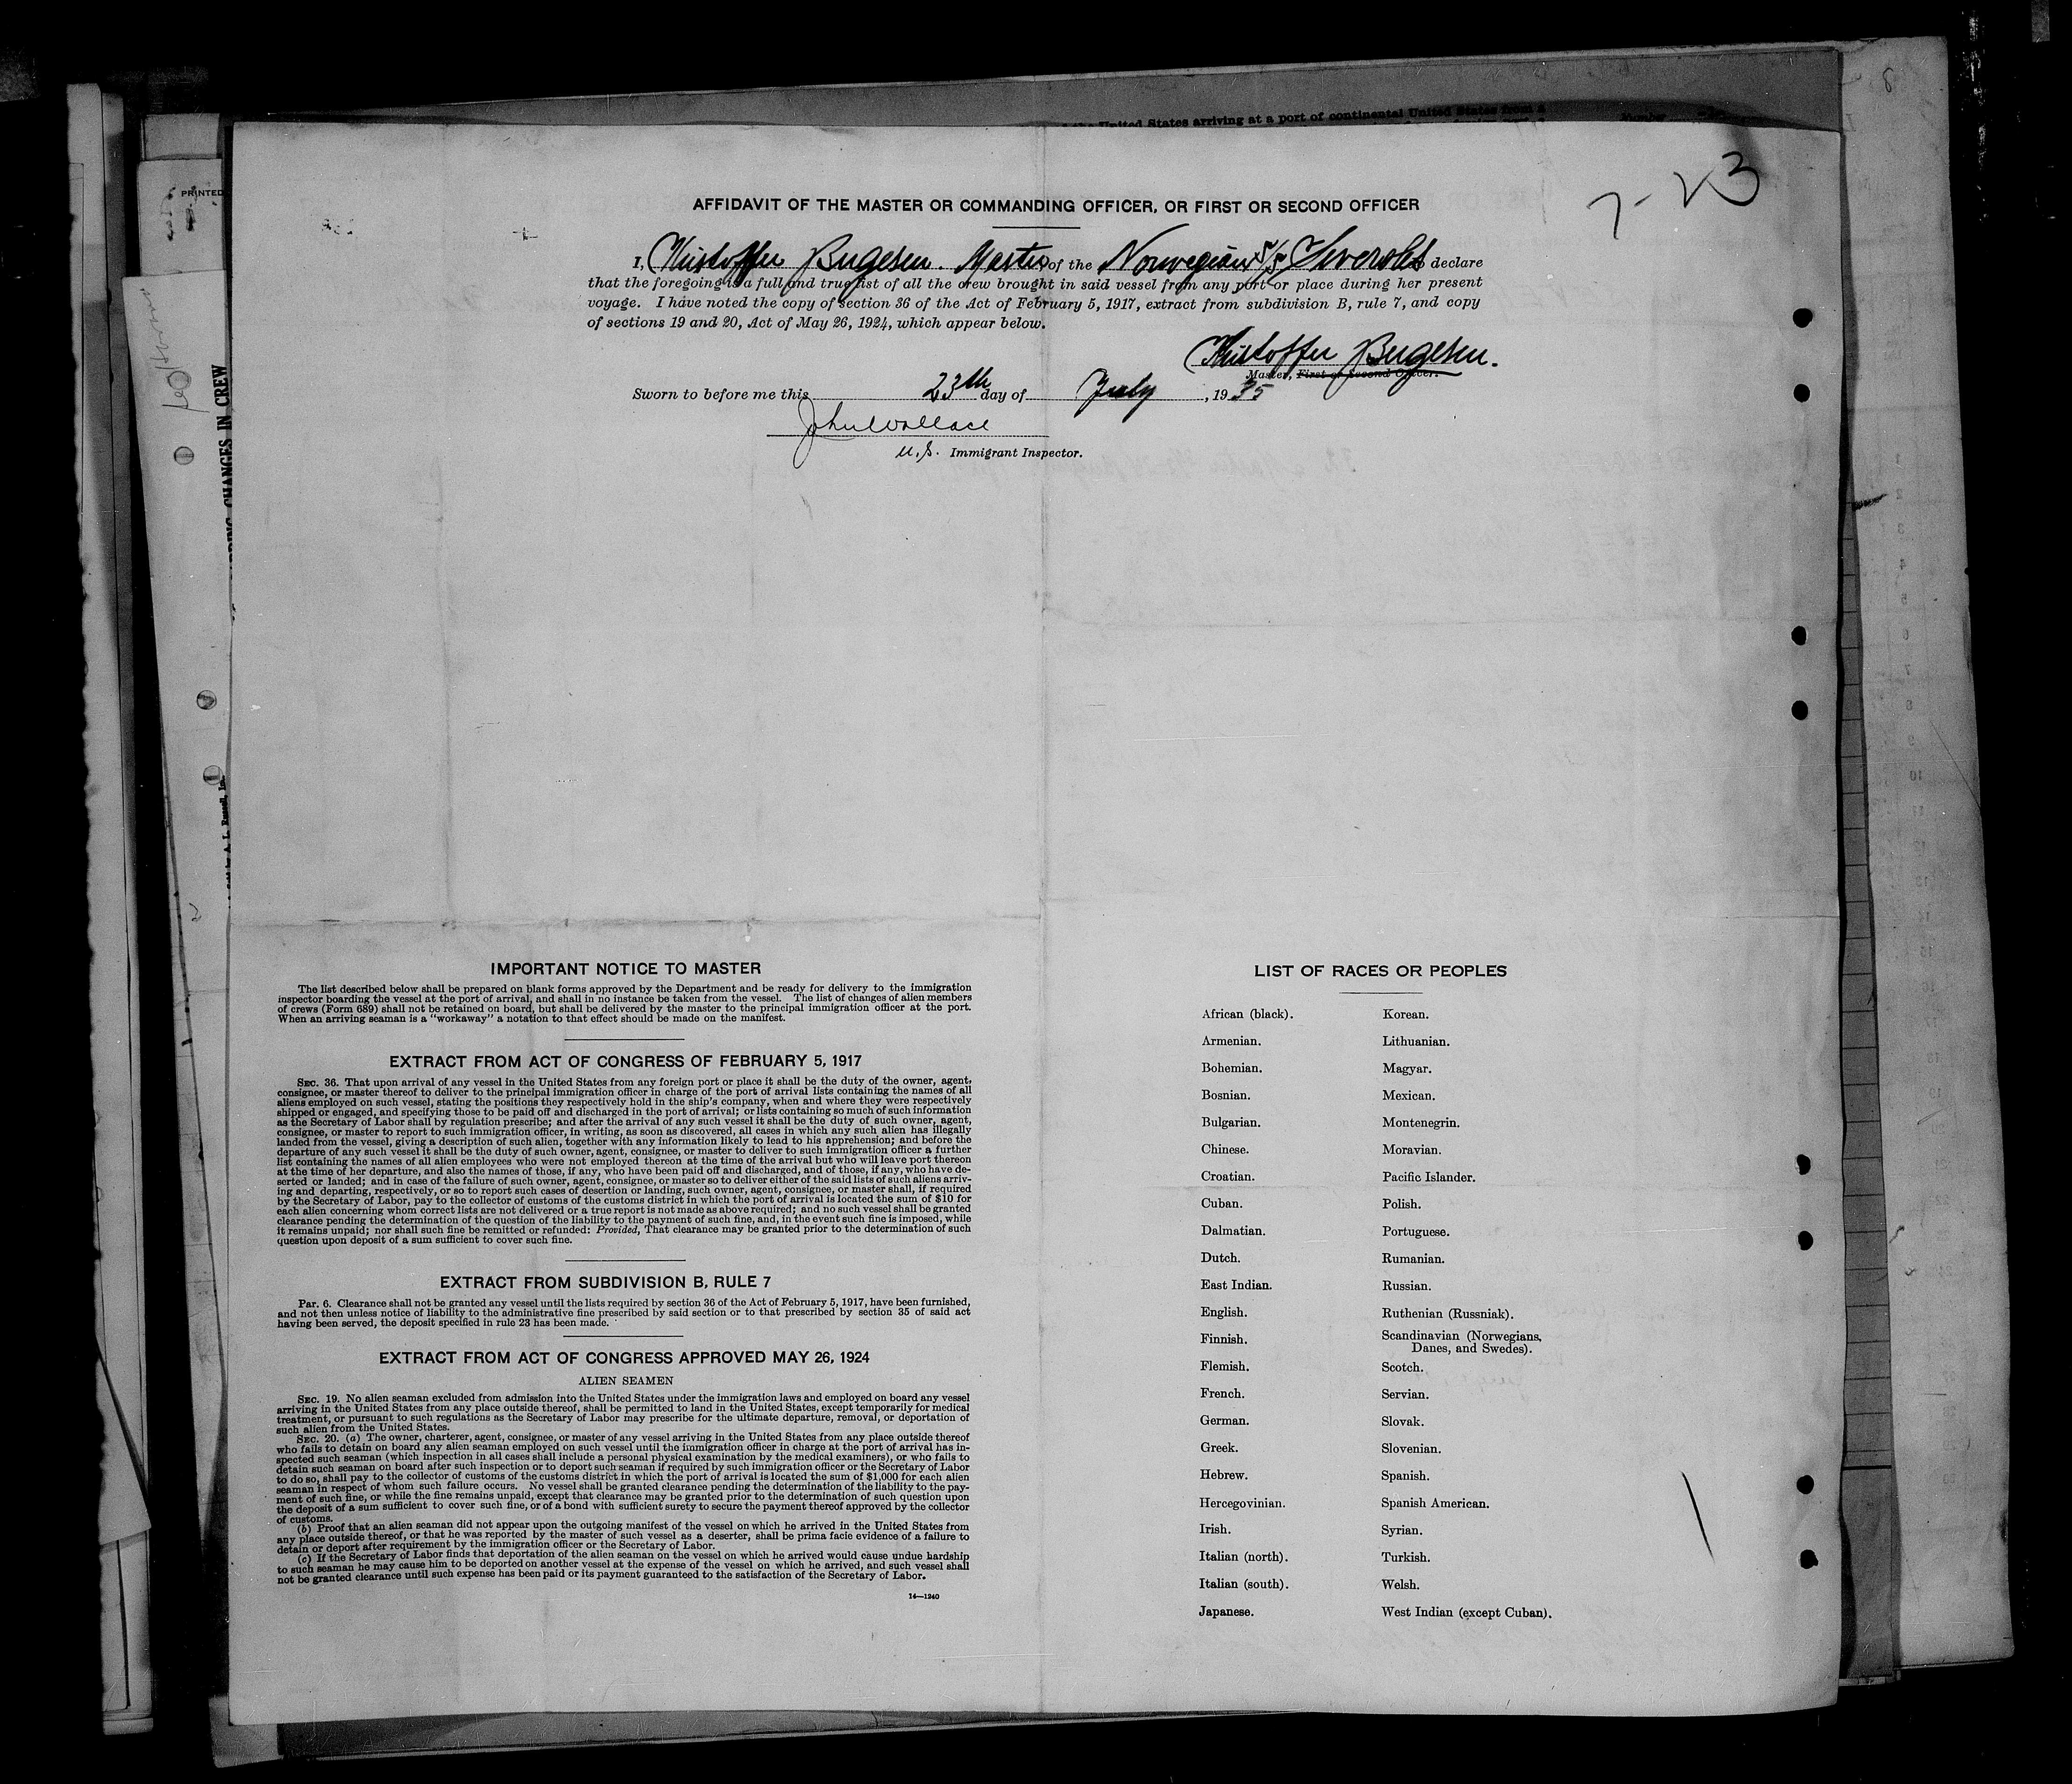 the United States arriving at a port of continental United States from a
PRINTED
CHANGES IN CREW
7-23
AFFIDAVIT OF THE MASTER OR COMMANDING OFFICER, OR FIRST OR SECOND OFFICER
I, Kristoffer Bugesen. Master of the Norwegian S/S do declare
that the foregoing is a full and true list of all the crew brought in said vessel from any port or place during her present
voyage. I have noted the copy of section 36 of the Act of February 5, 1917, extract from subdivision B, rule 7, and copy
of sections 19 and 20, Act of May 26, 1924, which appear below.
Kristoffer Bugesen.
Master, First or Second Officer.
Sworn to before me this 23th day of July, 1935
John Wallace
U.S. Immigrant Inspector.
IMPORTANT NOTICE TO MASTER
The list described below shall be prepared on blank forms approved by the Department and be ready for delivery to the immigration
inspector boarding the vessel at the port of arrival, and shall in no instance be taken from the vessel. The list of changes of alien members
of crews (Form 689) shall not be retained on board, but shall be delivered by the master to the principal immigration officer at the port.
When an arriving seaman is a "workaway" a notation to that effect should be made on the manifest.
EXTRACT FROM ACT OF CONGRESS OF FEBRUARY 5, 1917
SEC. 36. That upon arrival of any vessel in the United States from any foreign port or place it shall be the duty of the owner, agent,
consignee, or master thereof to deliver to the principal immigration officer in charge of the port of arrival lists containing the names of all
aliens employed on such vessel, stating the positions they respectively hold in the ship's company, when and where they were respectively
shipped or engaged, and specifying those to be paid off and discharged in the port of arrival; or lists containing so much of such information
as the Secretary of Labor shall by regulation prescribe; and after the arrival of any such vessel it shall be the duty of such owner, agent,
consignee, or master to report to such immigration officer, in writing, as soon as discovered, all cases in which any such alien has illegally
landed from the vessel, giving a description of such alien, together with any information likely to lead to his apprehension; and before the
departure of any such vessel it shall be the duty of such owner, agent, consignee, or master to deliver to such immigration officer a further
list containing the names of all alien employees who were not employed thereon at the time of the arrival but who will leave port thereon
at the time of her departure, and also the names of those, if any, who have been paid off and discharged, and of those, if any, who have de-
serted or landed; and in case of the failure of such owner, agent, consignee, or master so to deliver either of the said lists of such aliens arriv-
ing and departing, respectively, or so to report such cases of desertion or landing, such owner, agent, consignee, or master shall, if required
by the Secretary of Labor, pay to the collector of customs of the customs district in which the port of arrival is located the sum of $10 for
each alien concerning whom correct lists are not delivered or a true report is not made as above required; and no such vessel shall be granted
clearance pending the determination of the question of the liability to the payment of such fine, and, in the event such fine is imposed, while
it remains unpaid; nor shall such fine be remitted or refunded: Provided, That clearance may be granted prior to the determination of such
question upon deposit of a sum sufficient to cover such fine.
EXTRACT FROM SUBDIVISION B, RULE 7
Par. 6. Clearance shall not be granted any vessel until the lists required by section 36 of the Act of February 5, 1917, have been furnished,
and not then unless notice of liability to the administrative fine prescribed by said section or to that prescribed by section 35 of said act
having been served, the deposit specified in rule 23 has been made.
EXTRACT FROM ACT OF CONGRESS APPROVED MAY 26, 1924
ALIEN SEAMEN
SEC. 19. No alien seaman excluded from admission into the United States under the immigration laws and employed on board any vessel
arriving in the United States from any place outside thereof, shall be permitted to land in the United States, except temporarily for medical
treatment, or pursuant to such regulations as the Secretary of Labor may prescribe for the ultimate departure, removal, or deportation of
such alien from the United States.
SEC. 20. (a) The owner, charterer, agent, consignee, or master of any vessel arriving in the United States from any place outside thereof
who fails to detain on board any alien seaman employed on such vessel until the immigration officer in charge at the port of arrival has in-
spected such seaman (which inspection in all cases shall include a personal physical examination by the medical examiners), or who fails to
detain such seaman on board after such inspection or to deport such seaman if required by such immigration officer or the Secretary of Labor
to do so, shall pay to the collector of customs of the customs district in which the port of arrival is located the sum of $1,000 for each alien
seaman in respect of whom such failure occurs. No vessel shall be granted clearance pending the determination of the liability to the pay-
ment of such fine, or while the fine remains unpaid, except that clearance may be granted prior to the determination of such question upon
the deposit of a sum sufficient to cover such fine, or of a bond with sufficient surety to secure the payment thereof approved by the collector
of customs.
(b) Proof that an alien seaman did not appear upon the outgoing manifest of the vessel on which he arrived in the United States from
any place outside thereof, or that he was reported by the master of such vessel as a deserter, shall be prima facie evidence of a failure to
detain or deport after requirement by the immigration officer or the Secretary of Labor.
(c) If the Secretary of Labor finds that deportation of the alien seaman on the vessel on which he arrived would cause undue hardship
to such seaman he may cause him to be deported on another vessel at the expense of the vessel on which he arrived, and such vessel shall
not be granted clearance until such expense has been paid or its payment guaranteed to the satisfaction of the Secretary of Labor.
14—1240
LIST OF RACES OR PEOPLES
African (black).
Armenian.
Bohemian.
Bosnian.
Bulgarian.
Chinese.
Croatian.
Cuban.
Dalmatian.
Dutch.
East Indian.
English.
Finnish.
Flemish.
French.
German.
Greek.
Hebrew.
Hercegovinian.
Irish.
Italian (north).
Italian (south).
Japanese.
Korean.
Lithuanian.
Magyar.
Mexican.
Montenegrin.
Moravian.
Pacific Islander.
Polish.
Portuguese.
Rumanian.
Russian.
Ruthenian (Russniak).
Scandinavian (Norwegians,
Danes, and Swedes).
Scotch.
Servian.
Slovak.
Slovenian.
Spanish.
Spanish American.
Syrian.
Turkish.
Welsh.
West Indian (except Cuban).